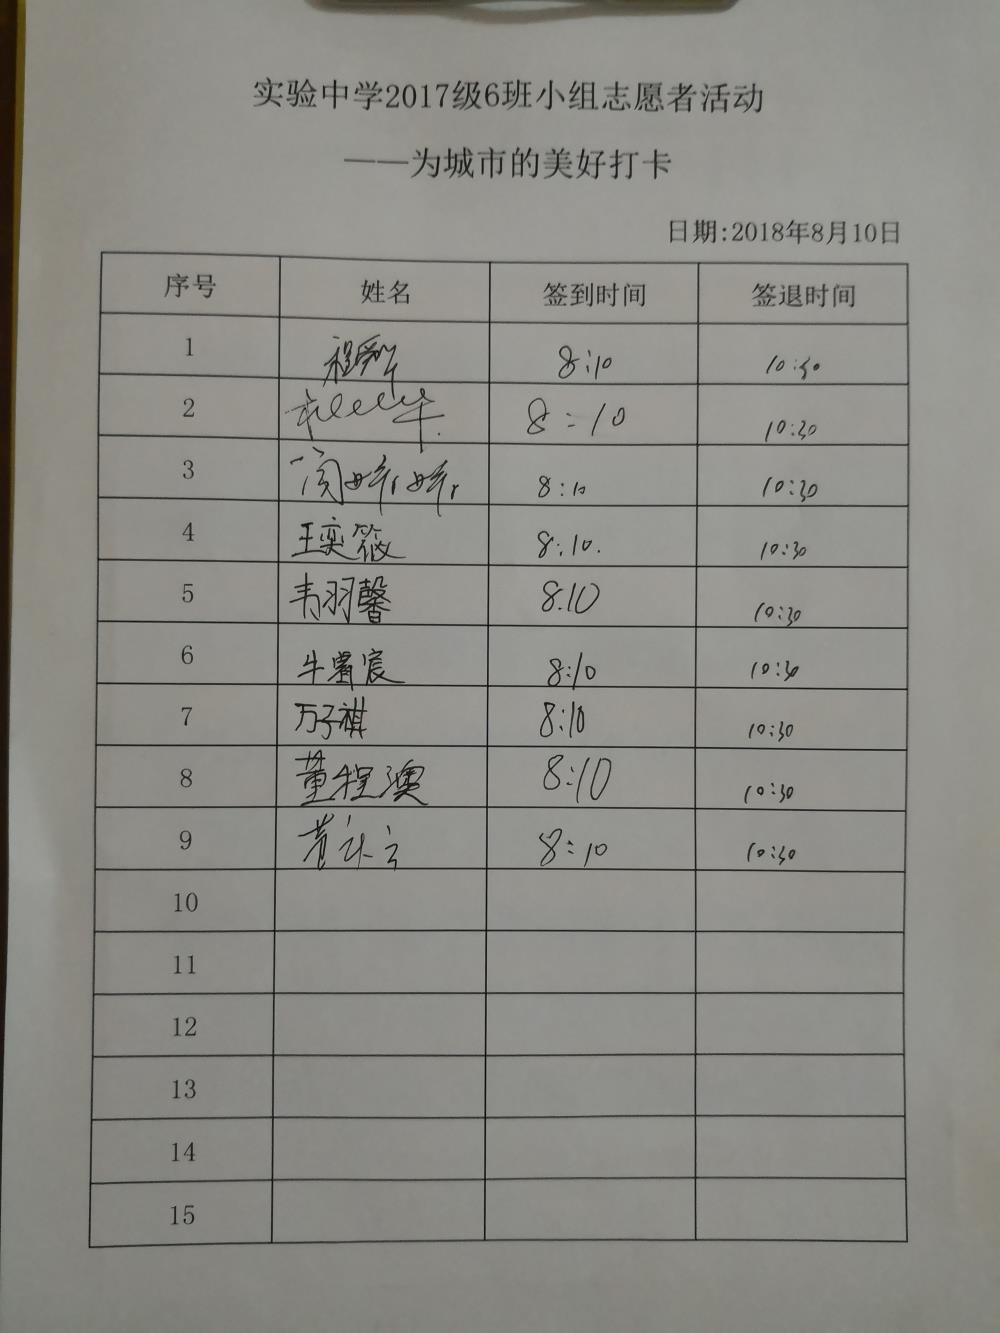 实验中学2017级6班小组志愿者活动
——为城市的美好打卡
日期:2018年8月10日
序号 姓名 签到时间 签退时间
1 8:10 10:30
2 8:10 10:30
3 闫婷婷 8:10 10:30
4 王奕筱 8:10. 10:30
5 韦羽馨 8.10 10:30
6 8:10 10:30
7 万子祺 8:10 10:30
8 董程澳 8:10 10:30
9 8:10 10:30
10
11
12
13
14
15